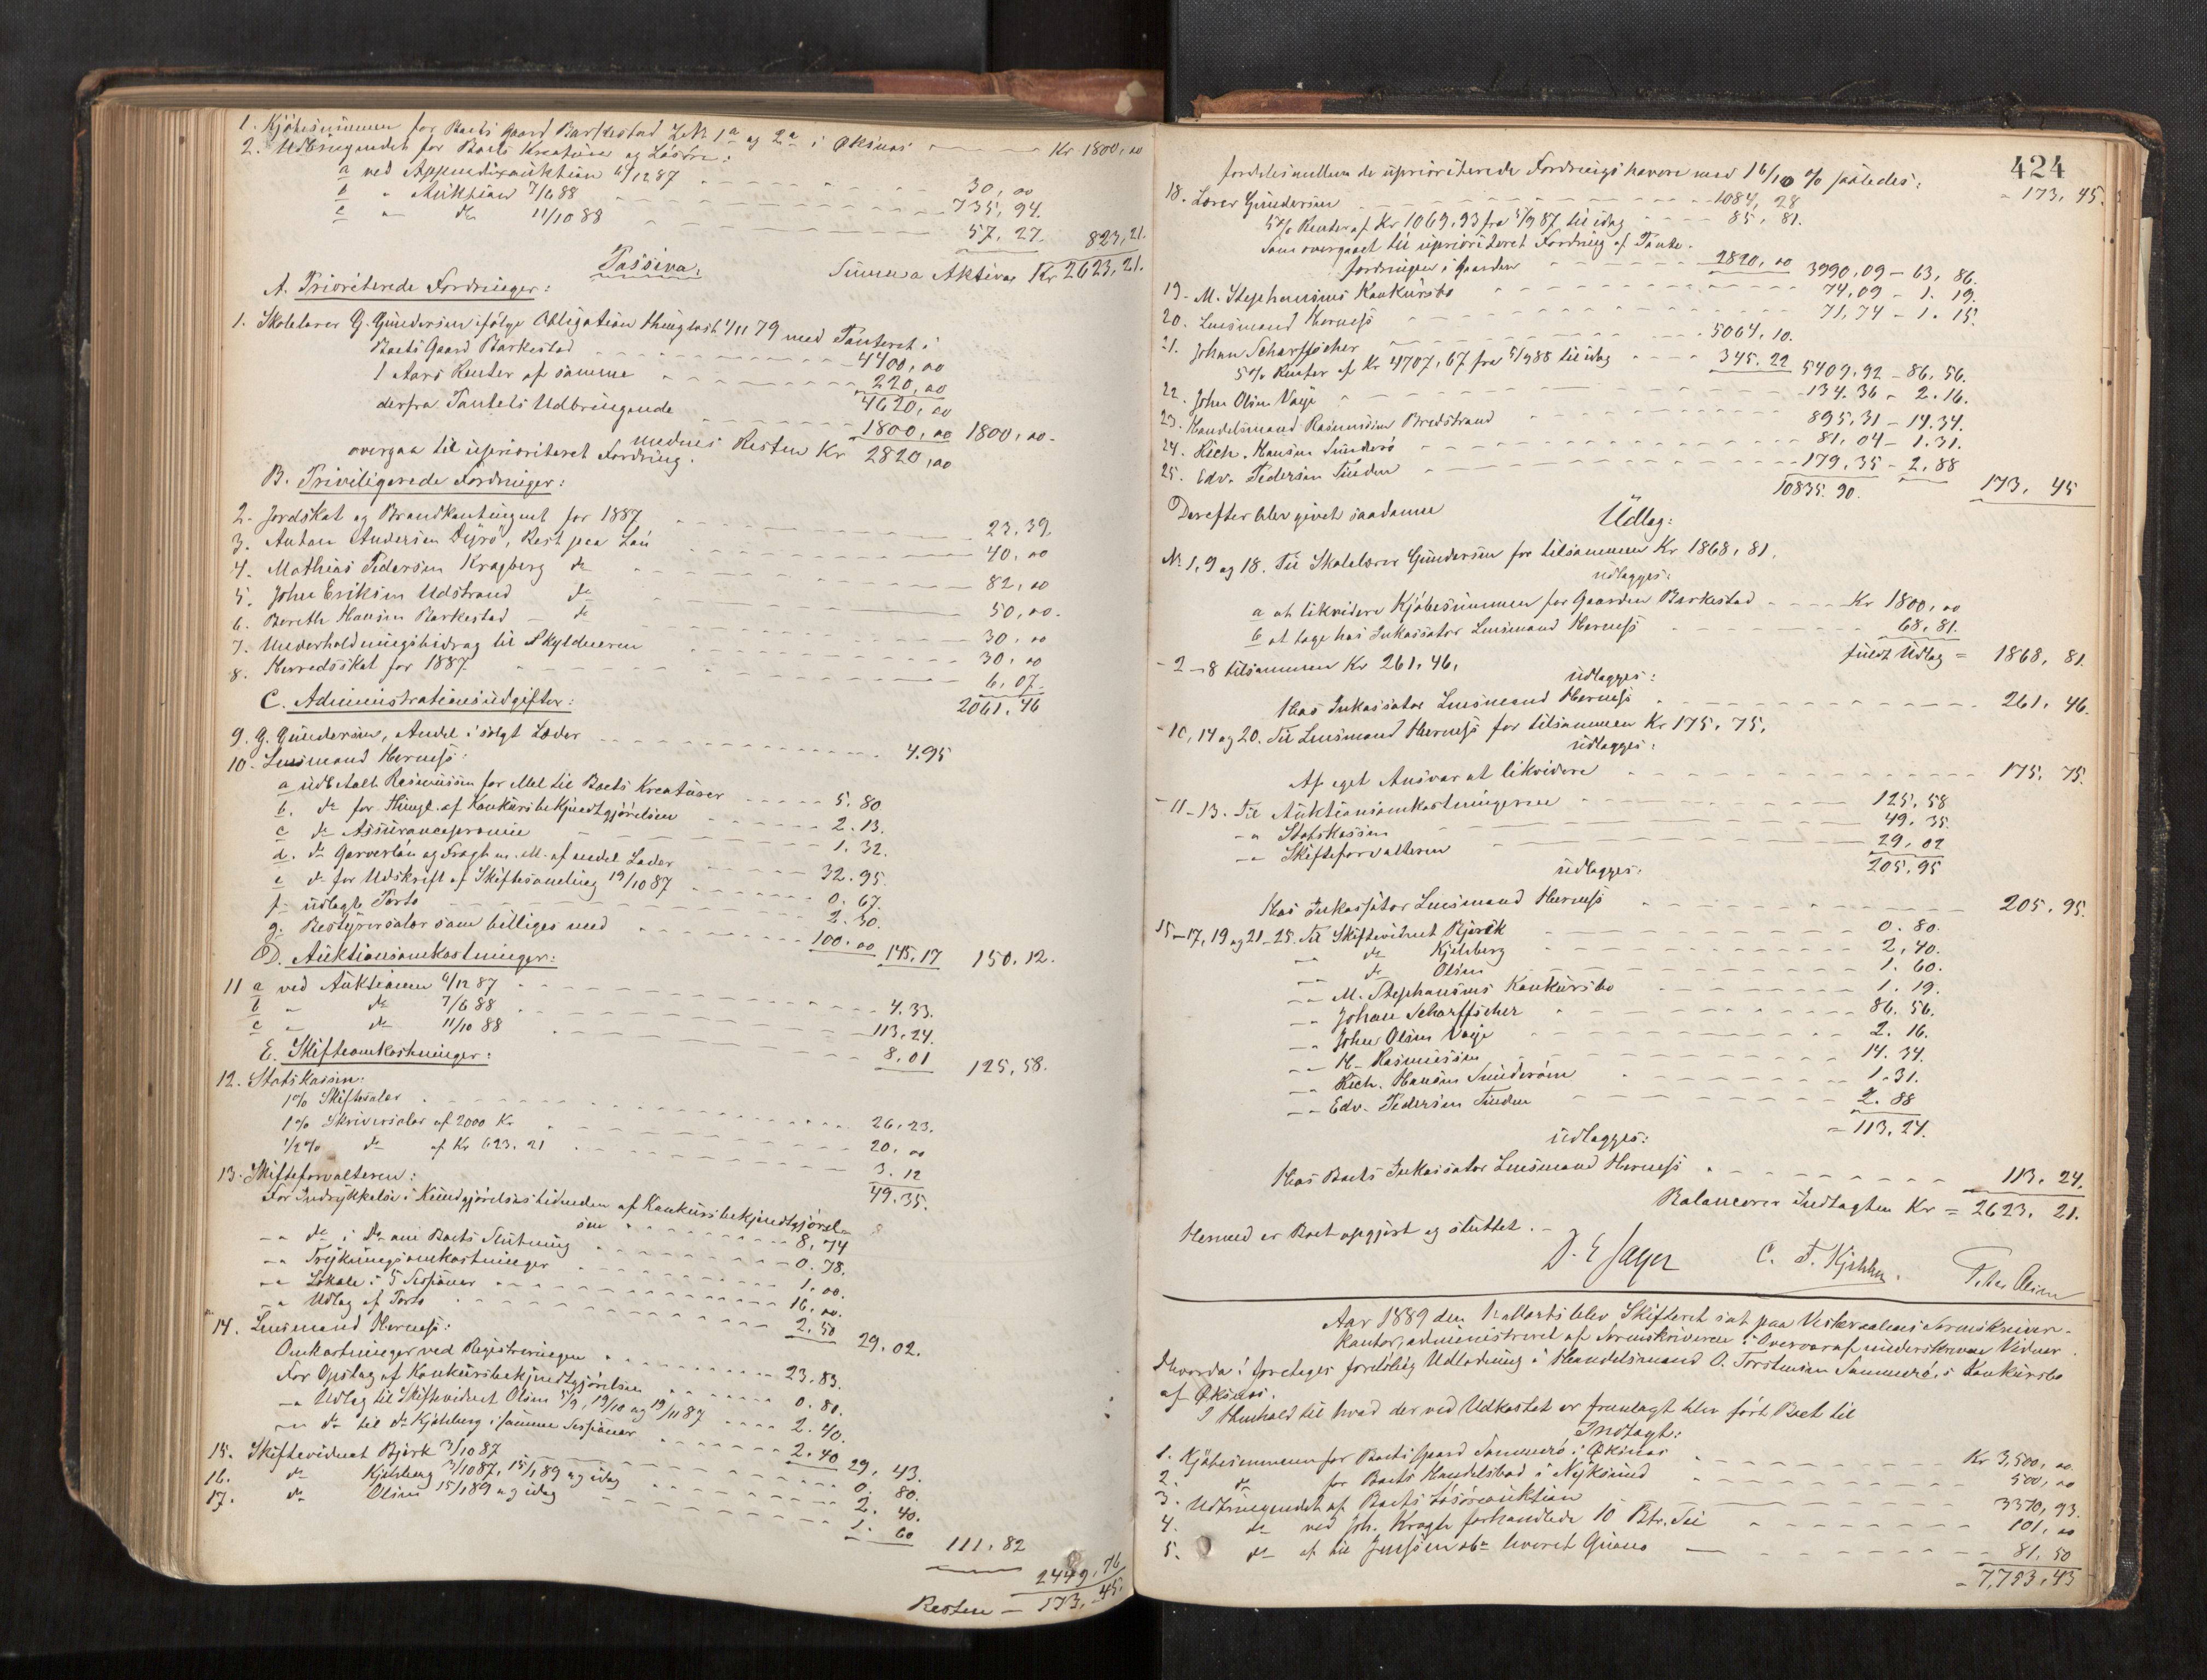 1. Kjøbesummen for Boets Gaard Barkestad L.Nr 1a og 2a i Øksnes Kr 1800,00
2. Udbringendet for Boets Kreaturer og Løsøre:
a ved Appendixauktion 6/12 87 30,00
b " Auktion 7/6 88 735,94.
c " do 11/10 88 57,27. 823,21.
Summa Aktiva Kr 2623,21.
Passiva:
A. Prioriterede Fordringer:
1. Skolelærer G. Gundersen ifølge Obligation thinglæst 4/11 79 med Panteret i
Boets Gaard Barkestad 4400,00
1 Aars Renter af samme 220,00
4620,00
derfra Pantets Udbringende 1800,00 1800,00.
medens Resten Kr 2820,00
overgaa til uprioriteret Fordring.
B. Priviligerede Fordringer:
2. Jordskat og Brandkontingent for 1887 23,39.
3. Anton Andersen Dyrø, Rest paa Løn 40,00
4. Mathias Pedersen Kragberg do 82,00
5. John Eriksen Udstrand do 50,00.
6. Boreth Hansen Barkestad do 30,00
7. Underholdningsbidrag til Skyldneren 30,00
8. Herredsskat for 1887 6,07.
2061,46
C. Administrationsudgifter:
9. G. Gundersen, Andel i solgt Læder 4.95
10. Lensmand Hernes:
a udbetalt Rasmussen for Mel til Boets Kreaturer 5.80
b. do for Thingl. af Konkursbekjendtgjørelsen 2.13.
c do Assurancepræmie 1.32.
d. do Garverløn og Fragt m. M. af endel Læder 32.95.
e do for Udskrift af Skiftesamling 19/10 87 0.67.
f. udlagt Porto 2.30.
g. Bestyrersalær som billiges med 100.00 145,17 150.12.
D. Auktionsomkostninger:
11 a ved Auktionen 6/12 87 4.33.
b " do 7/6 88 113.24.
c " do 11/10 88 8,01 125,58.
E. Skifteomkostninger:
12. Statskassen:
1% Skiftesalær 26,23.
1% Skriversalær af 2000 Kr 20,00
1/2% do af Kr 623.21 3.12
49.35.
13. Skifteforvalteren:
For Indrykkelse i Kundgjørelsestidenden af Konkursbekjendtgjørel-
sen 8,74
-"- do i do om Boets Slutning 0.78.
-"- Trykningsomkostninger 1.00.
-"- Lokale i 5 Sessioner 16,00.
-"- Udlæg af Porto 2.50 29.02.
14. Lensmand Hernes:
Omkostninger ved Registreringen 23.83.
For Opslag af Konkursbekjendtgjørelsen 0.80.
-"- Udlæg til Skiftevidnet Olsen 5/9, 19/10 og 19/11 87 2.40.
-"- do til do Kjehlberg i samme Sessioner 2.40 29,43.
15. Skiftevidnet Bjørk 3/10 87 0.80.
16. do Kjehlberg 3/10 87, 15/1 89 og idag 2.40.
17. do Olsen 15/1 89 og idag 1.60 111,82
2449,76
Resten — 173,45.
424
fordeles mellem de uprioriterede Fordringshavere med 16/10 % saaledes: " 173,45.
18. Lærer Gundersen 1084,28
5% Renter af Kr 1069,93 fra 5/9 87 til idag 85,81.
som overgaaet til uprioriteret Fordring af Pante-
fordringen i Gaarden 2820,00 3990,09 – 63,86.
19. M. Stephansens Konkursbo 74,09 – 1.19.
20. Lensmand Hernes 71,74 – 1.15.
21. Johan Scharffscher 5064,10.
5% Renter af Kr 4707,67 fra 5/9 88 til idag 345.22 5409,92 – 86,56.
22. John Olsen Vaje 134.36 – 2.16.
23. Handelsmand Rasmussen Bredstrand 895,31 – 14.34.
24. Rich. Hansen Sunderø 81,04 – 1.31.
25. Edv. Pedersen Tinden 179.35 – 2,88
10835.90. 173,45
Derefter blev givet saadanne
Udlæg:
No 1, 9 og 18. Til Skolelærer Gundersen for tilsammen Kr 1868,81.
udlægges:
a at likvidere Kjøbesummen for Gaarden Barkestad Kr 1800,00
b at tage hos Inkassator Lensmand Hernes 68,81.
fuldt Udlæg = 1868,81.
- 2–8 tilsammen Kr 261,46.
udlægges:
Hos Inkassator Lensmand Hernes 261,46.
- 10, 14 og 20. Til Lensmand Hernes for tilsammen Kr 175,75.
udlægges:
Af eget Ansvar at likvidere 175,75.
- 11–13. Til Auktionsomkostningerne 125,58
-"- Statskassen 49.35.
-"- Skifteforvalteren 29,02
205,95
udlægges:
Hos Inkassator Lensmand Hernes 205,95.
15–17, 19 og 21–25. Til Skiftevidnet Bjørk 0.80.
-"- do Kjehlberg 2,40.
do Olsen 1.60.
-"- M. Stephansens Konkursbo 1.19.
-"- Johan Scharffscher 86.56.
-"- John Olsen Vaje 2.16.
-"- H. Rasmussen 14.34.
-"- Rich. Hansen Sunderøen 1.31.
-"- Edv. Pedersen Tinden 2.88
= 113,24.
udlægges:
Hos Boets Inkassator Lensmand Hernes 113,24.
Balancerer Indtægten Kr = 2623,21.
Hermed er Boet opgjort og sluttet. –
D. E Sager C. F. Kjehlb. Peter Olsen
Aar 1889 den blev Skifteret sat paa Vesteraalens Sorenskriver-
kontor, administreret af Sorenskriveren i Overvær af underskrevne Vidner.
Hvorda: foretoges foreløbig Udlodning i Handelsmand O. Torstensen Sammerø's Konkursbo
af Øksnes.
I Henhold til hvad der ved Udkastet er fremlagt blev ført Boet til
Indtægt:
1. Kjøbesummen for Boets Gaard Sammerø i Øksnes Kr 3,500,00
2. do for Boets Handelsbod i Nyksund 500,00
3. Udbringendet af Boets Løsøreauktion 3370,93.
4. do ved Joh. Kragh forhandlede 10 Btr. Sei 101,00
5. do af til Jensen leveret Guano 81.50
= 7,753,43